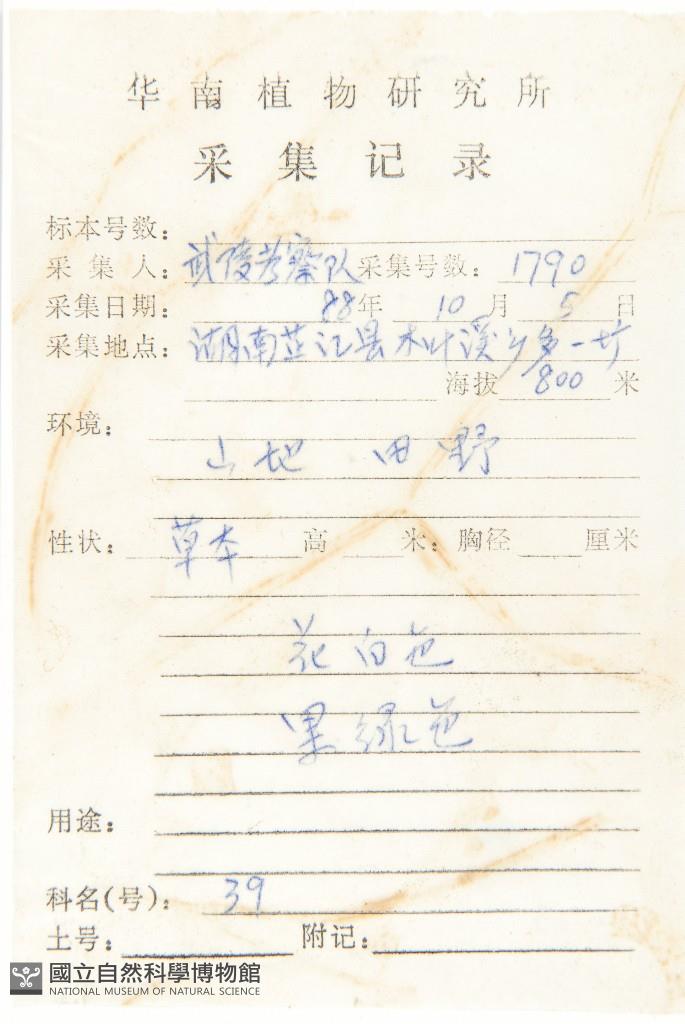 华南植物研究所
采集记录
标本号数：
采集人：武陵考察队 采集号数：1790
采集日期：88年10月5日
采集地点：湖南芷江县木叶溪乡
海拔 800 米
环境：
山地 田野
性状：草本 高 米；胸径 厘米
花白色
果绿色
用途：
科名(号)：39
土号： 附记：
國立自然科學博物館
NATIONAL MUSEUM OF NATURAL SCIENCE